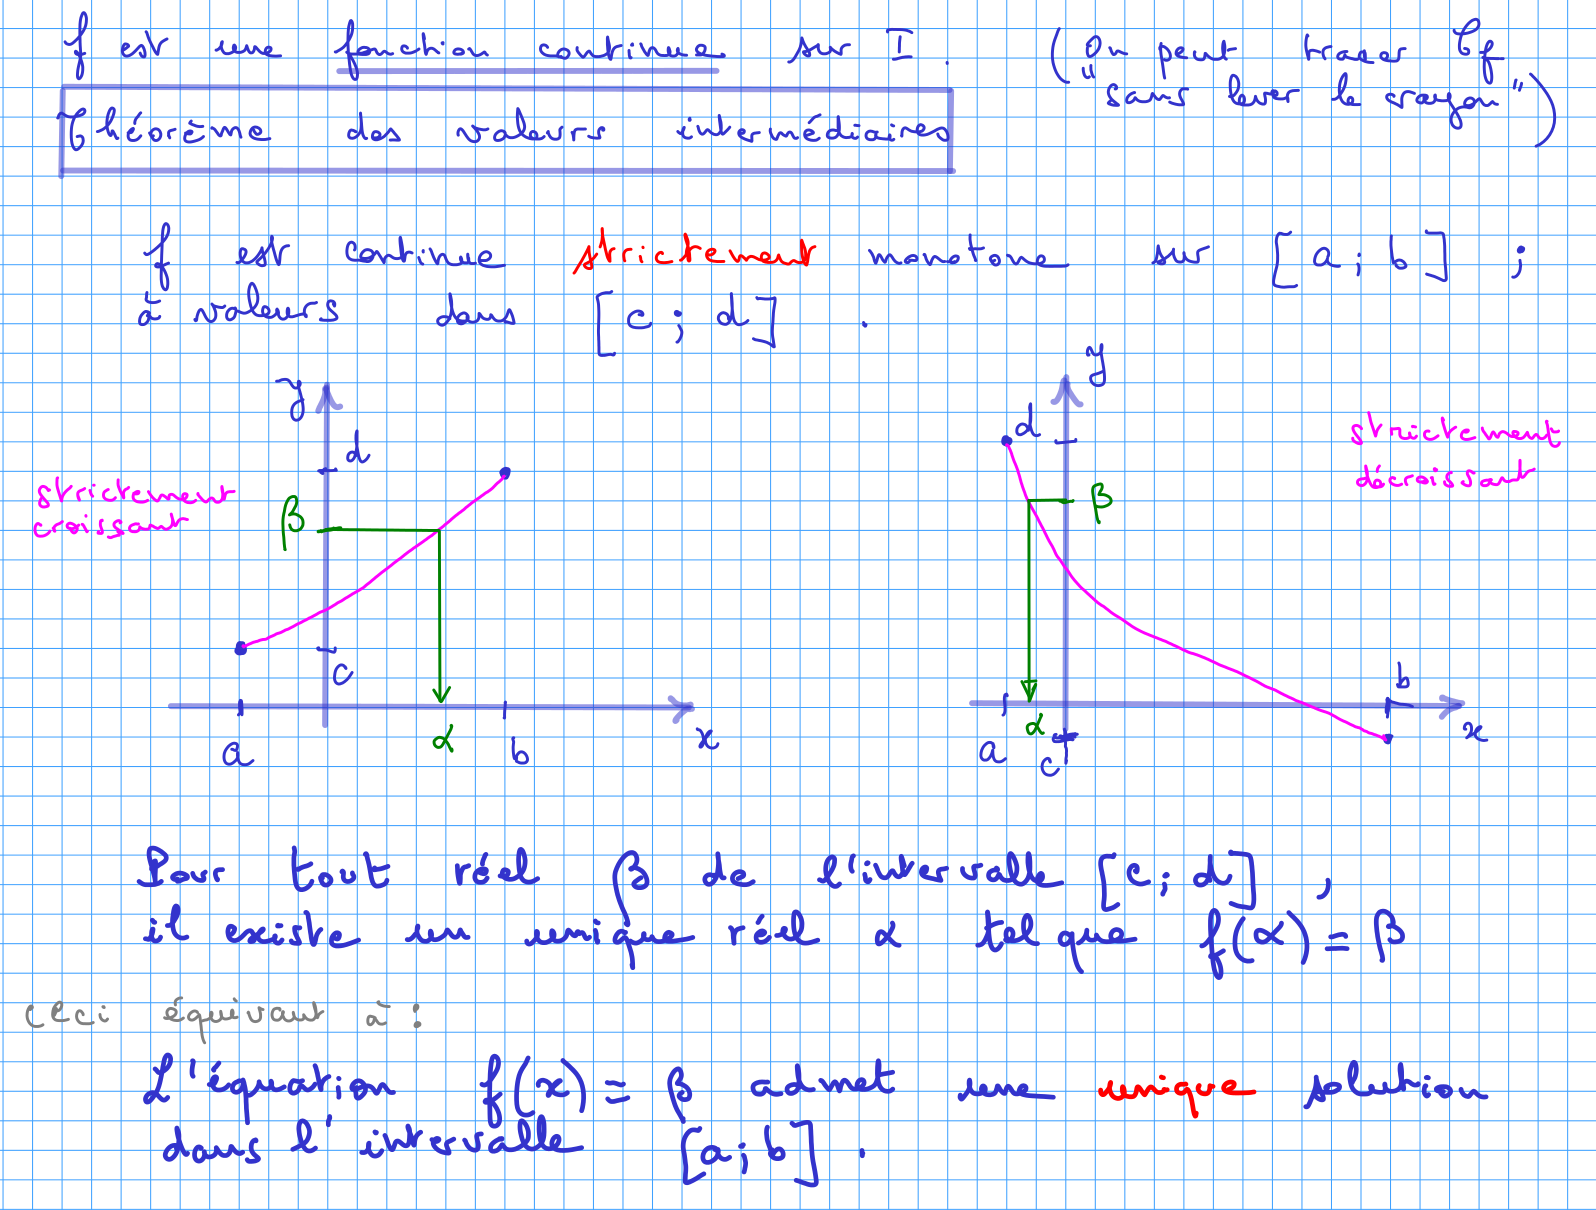 f est une fonction continue sur I. (On peut tracer Cf
"sans lever le crayon")
Théorème des valeurs intermédiaires
f est continue strictement monotone sur [a ; b] ;
à valeurs dans [c ; d] .
y
d
strictement
croissant
β
c
a
α
b
x
y
d
strictement
décroissant
β
b
a
α
c
x
Pour tout réel β de l'intervalle [c ; d] ,
il existe un unique réel α tel que f(α) = β
Ceci équivaut à :
L'équation f(x) = β admet une unique solution
dans l'intervalle [a ; b] .